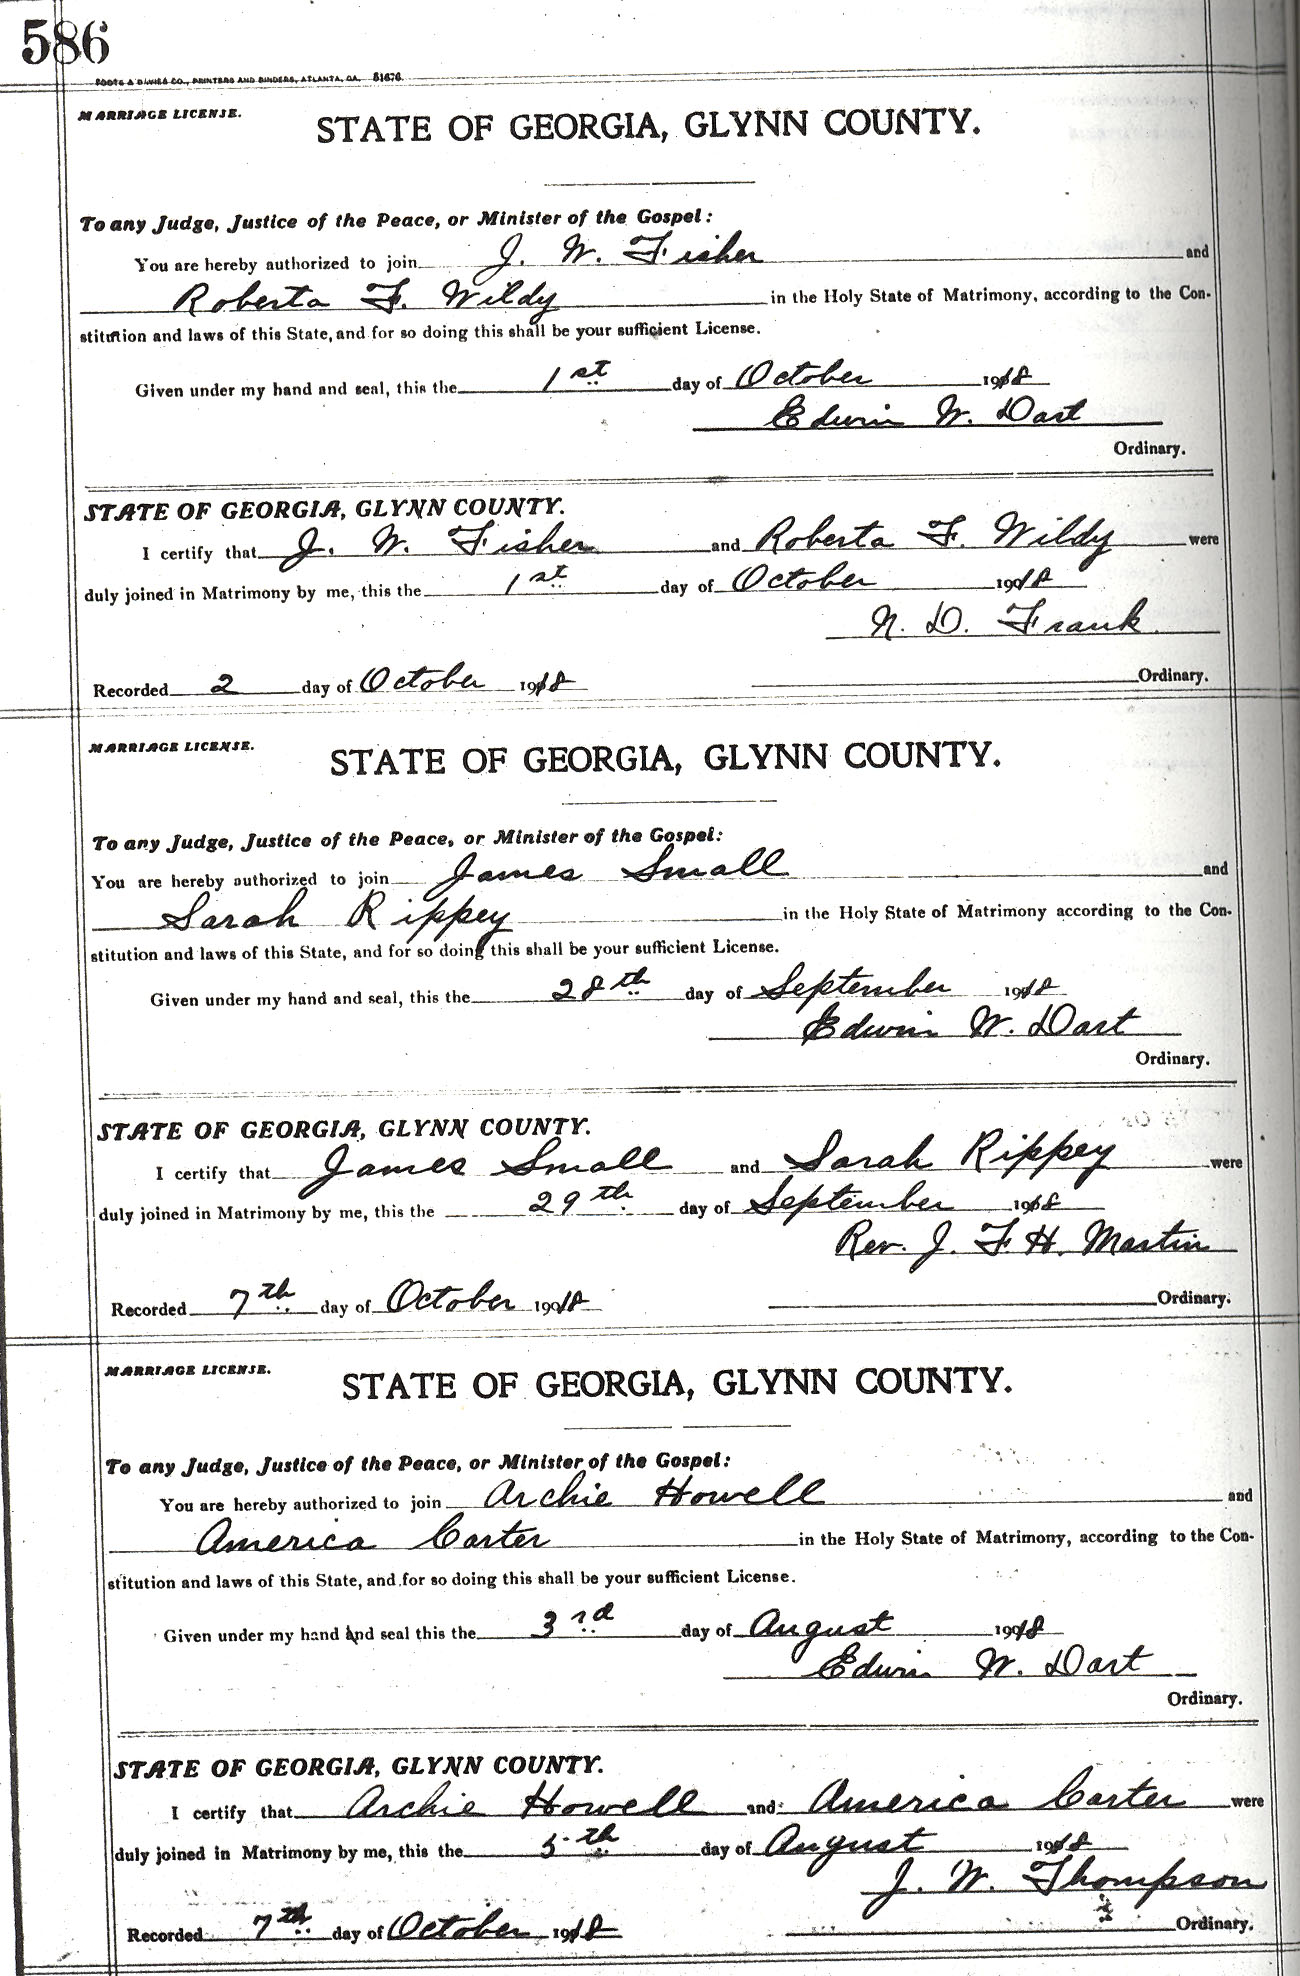 586
FOOTE & DAVIES CO., PRINTERS AND BINDERS, ATLANTA, GA. 51676
MARRIAGE LICENSE.
STATE OF GEORGIA, GLYNN COUNTY.
To any Judge, Justice of the Peace, or Minister of the Gospel:
You are hereby authorized to join J. W. Fisher and
Roberta F. Wildy in the Holy State of Matrimony, according to the Con-
stitution and laws of this State, and for so doing this shall be your sufficient License.
Given under my hand and seal, this the 1st day of October 1918
Edwin W. Dart
Ordinary.
STATE OF GEORGIA, GLYNN COUNTY.
I certify that J. W. Fisher and Roberta F. Wildy were
duly joined in Matrimony by me, this the 1st day of October 1918
N. D. Frank
Recorded 2 day of October 1918 Ordinary.
MARRIAGE LICENSE.
STATE OF GEORGIA, GLYNN COUNTY.
To any Judge, Justice of the Peace, or Minister of the Gospel:
You are hereby authorized to join James Small and
Sarah Rippey in the Holy State of Matrimony according to the Con-
stitution and laws of this State, and for so doing this shall be your sufficient License.
Given under my hand and seal, this the 28th day of September 1918
Edwin W. Dart
Ordinary.
STATE OF GEORGIA, GLYNN COUNTY.
I certify that James Small and Sarah Rippey were
duly joined in Matrimony by me, this the 29th day of September 1918
Rev. J. F. H. Martin
Recorded 7th day of October 1918 Ordinary.
MARRIAGE LICENSE.
STATE OF GEORGIA, GLYNN COUNTY.
To any Judge, Justice of the Peace, or Minister of the Gospel:
You are hereby authorized to join Archie Howell and
America Carter in the Holy State of Matrimony, according to the Con-
stitution and laws of this State, and for so doing this shall be your sufficient License.
Given under my hand and seal this the 3rd day of August 1918
Edwin W. Dart
Ordinary.
STATE OF GEORGIA, GLYNN COUNTY.
I certify that Archie Howell and America Carter were
duly joined in Matrimony by me, this the 5th day of August 1918
J. W. Thompson
Recorded 7th day of October 1918 Ordinary.